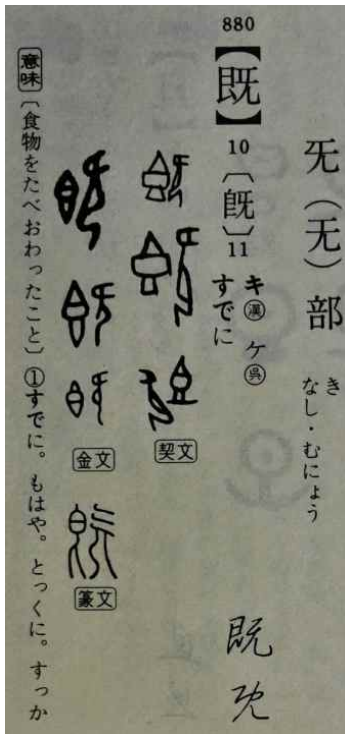 旡（无）部
き
なし・むにょう
880
【既】10〔旣〕11
キ㊄漢 ケ㊄呉
すでに
既
旡
契文
金文
篆文
意味〔食物をたべおわったこと〕①すでに。もはや。とっくに。すっか